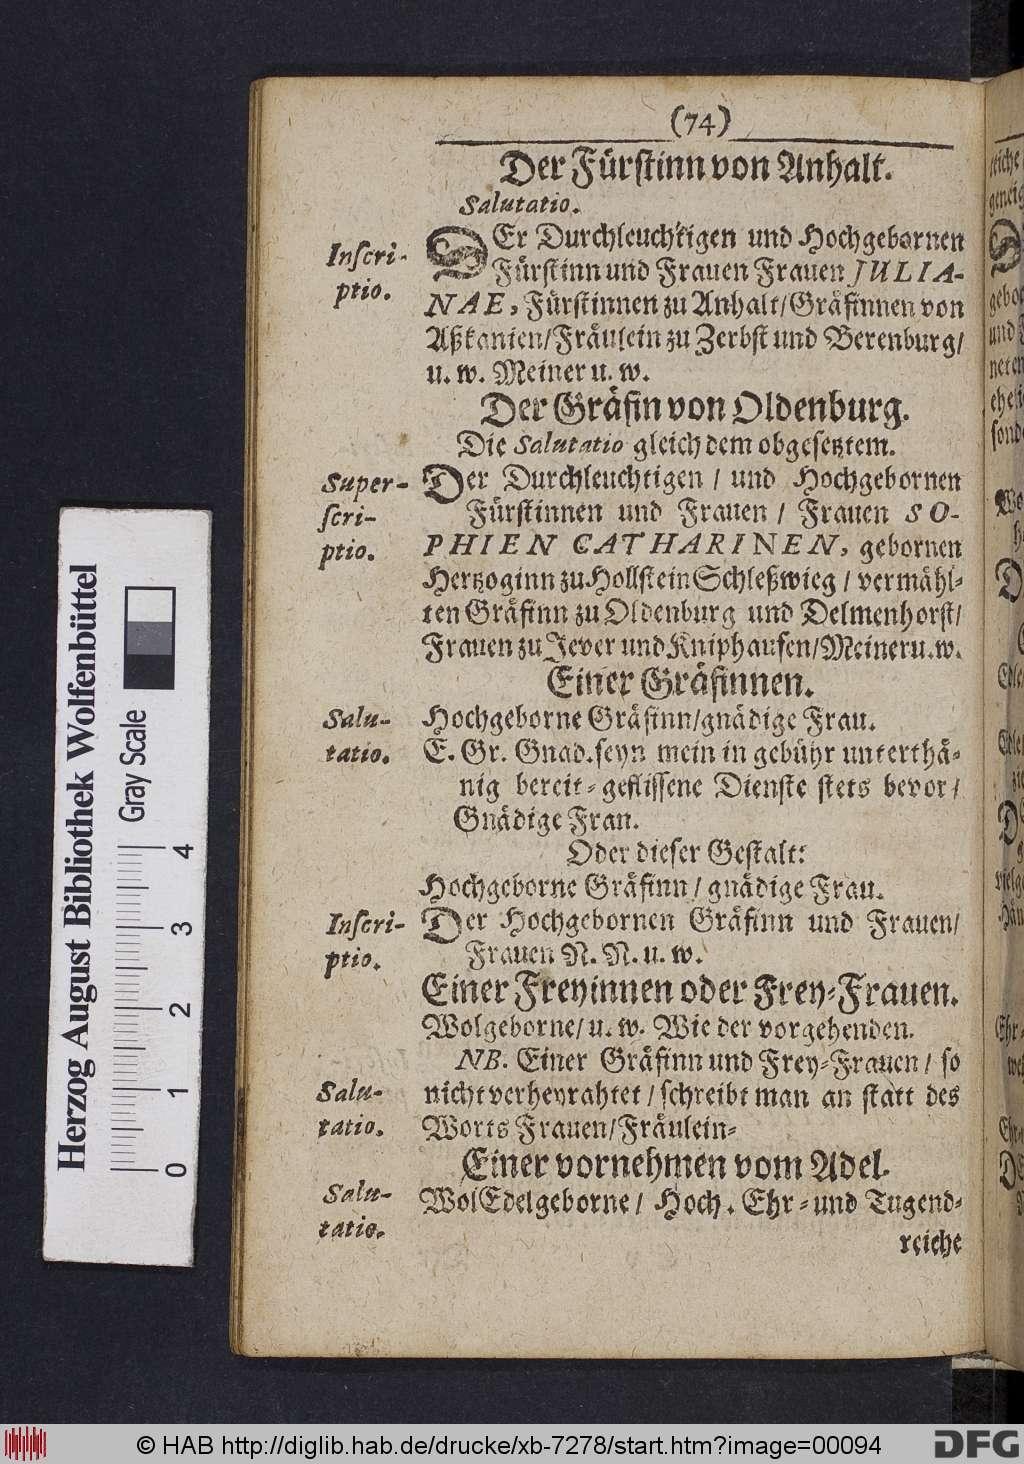 (74)
Der Fürstinn von Anhalt.
Salutatio.
Inscri-
ptio.
DEr Durchleuchtigen und Hochgebornen
Fürstinn und Frauen Frauen JULIA-
NAE, Fürstinnen zu Anhalt/Gräfinnen von
Aßkanien/Fräulein zu Zerbst und Berenburg/
u. w. Meiner u. w.
Der Gräfin von Oldenburg.
Die Salutatio gleich dem obgesetztem.
Super-
scri-
ptio.
Der Durchleuchtigen / und Hochgebornen
Fürstinnen und Frauen / Frauen SO-
PHIEN CATHARINEN, gebornen
Hertzoginn zu Hollstein Schleßwieg / vermähl-
ten Gräfinn zu Oldenburg und Delmenhorst/
Frauen zu Jever und Kniphausen/Meiner u.w.
Einer Gräfinnen.
Salu-
tatio.
Hochgeborne Gräfinn/gnädige Frau.
E. Gr. Gnad. seyn mein in gebühr unterthä-
nig bereit-geflissene Dienste stets bevor/
Gnädige Frau.
Oder dieser Gestalt:
Hochgeborne Gräfinn / gnädige Frau.
Inscri-
ptio.
Der Hochgebornen Gräfinn und Frauen/
Frauen N. N. u. w.
Einer Freyinnen oder Frey-Frauen.
Wolgeborne/ u. w. Wie der vorgehenden.
NB. Einer Gräfinn und Frey-Frauen / so
Salu-
tatio.
nicht verheyrahtet / schreibt man an statt des
Worts Frauen/Fräulein-
Einer vornehmen vom Adel.
Salu-
tatio.
WolEdelgeborne / Hoch. Ehr- und Tugend-
reiche
Herzog August Bibliothek Wolfenbüttel
Gray Scale
0 1 2 3 4
© HAB http://diglib.hab.de/drucke/xb-7278/start.htm?image=00094
DFG